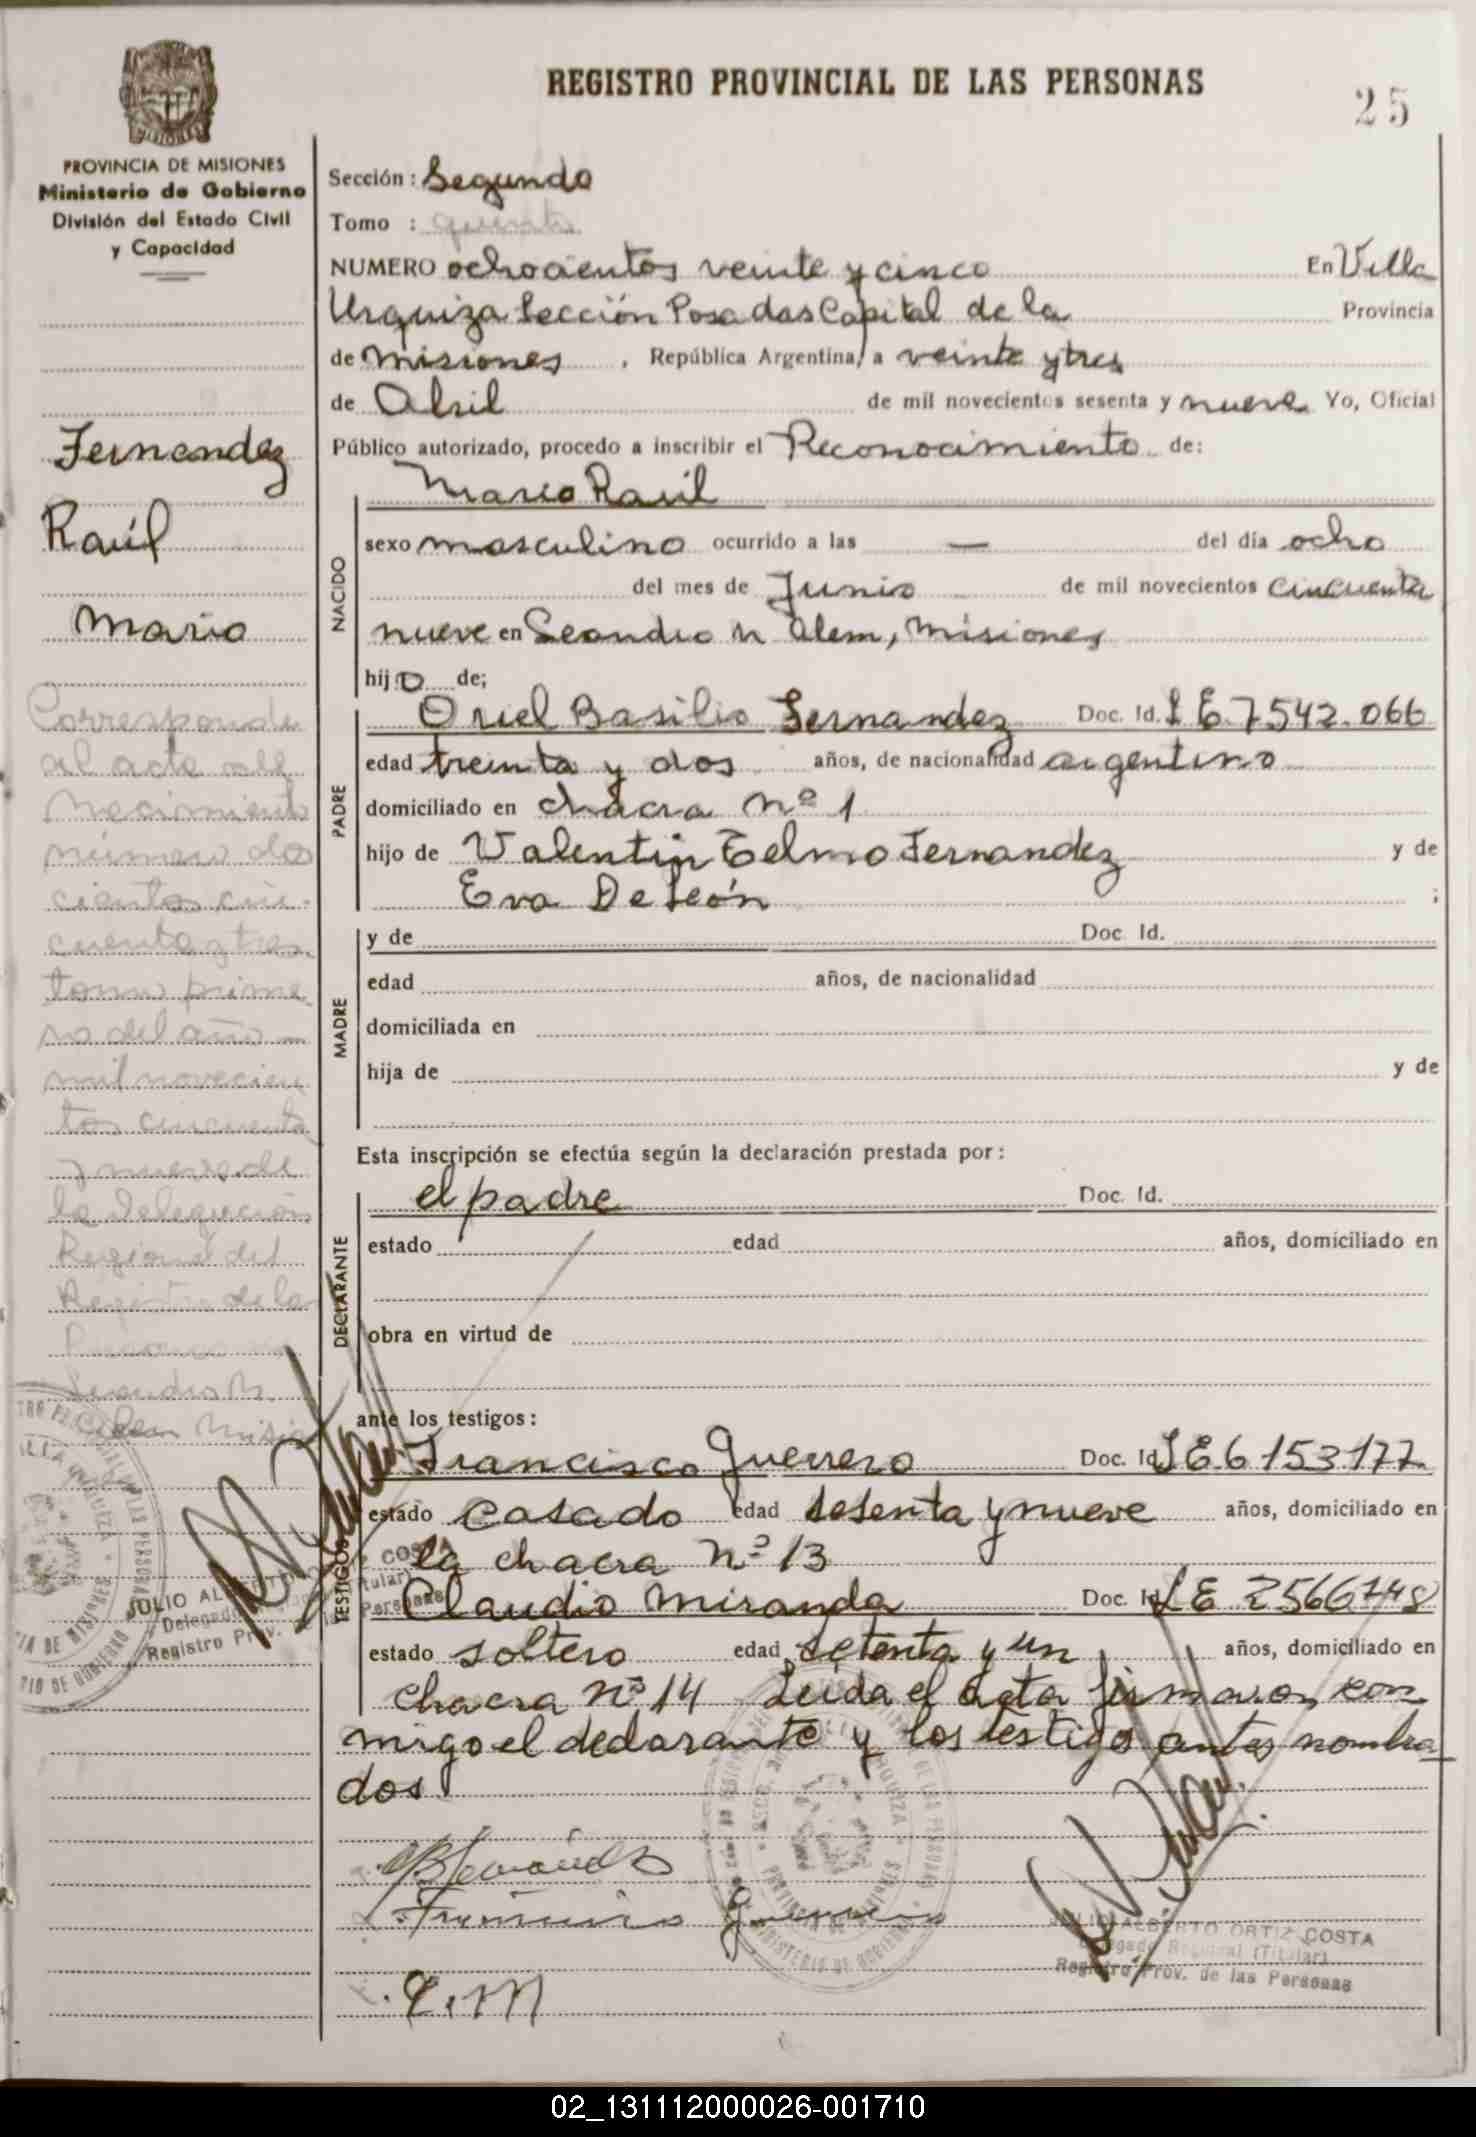 REGISTRO PROVINCIAL DE LAS PERSONAS
25
PROVINCIA DE MISIONES
Ministerio de Gobierno
División del Estado Civil
y Capacidad
Fernendez
Raúl
Mario
Corresponde
al acta de
necimiento
número dos
cientos cin-
cuenta y tres
tomo prime
ro del año
mil novecien
tos cincuenta
y nueve de
la Delegación
Regional del
Registro de las
Personas
Leandro N.
Alem Misio
Sección: Segundo
Tomo : quinto
NUMERO ochocientos veinte y cinco En Villa
Urquiza Sección Posadas Capital de la Provincia
de Misiones, República Argentina, a veinte y tres
de Abril de mil novecientos sesenta y nueve Yo, Oficial
Público autorizado, procedo a inscribir el Reconocimiento de:
Mario Raúl
NACIDO
sexo masculino ocurrido a las — del día ocho
del mes de Junio de mil novecientos cincuenta
nueve en Leandro N Alem, Misiones
hijo de;
PADRE
Oriel Basilio Fernandez Doc. Id. L E 7542.066
edad treinta y dos años, de nacionalidad argentino
domiciliado en chacra Nº 1
hijo de Valentin Telmo Fernandez y de
Eva De León ;
MADRE
y de Doc Id.
edad años, de nacionalidad
domiciliada en
hija de y de
Esta inscripción se efectúa según la declaración prestada por:
DECLARANTE
el padre Doc. Id.
estado edad años, domiciliado en
obra en virtud de
ante los testigos:
TESTIGOS
Francisco Guerrero Doc. Id. L E 6153177
estado casado edad sesenta y nueve años, domiciliado en
la chacra Nº 13
Claudio Miranda Doc. Id. L E 2566748
estado soltero edad setenta y un años, domiciliado en
chacra Nº 14 Leida el Acta firmaron con
migo el declarante y los testigos antes nombra
dos
Francisco Guerrero
C. M
JULIO ALBERTO ORTIZ COSTA
Delegado Regional (Titular)
Registro Prov. de las Personas
02_131112000026-001710